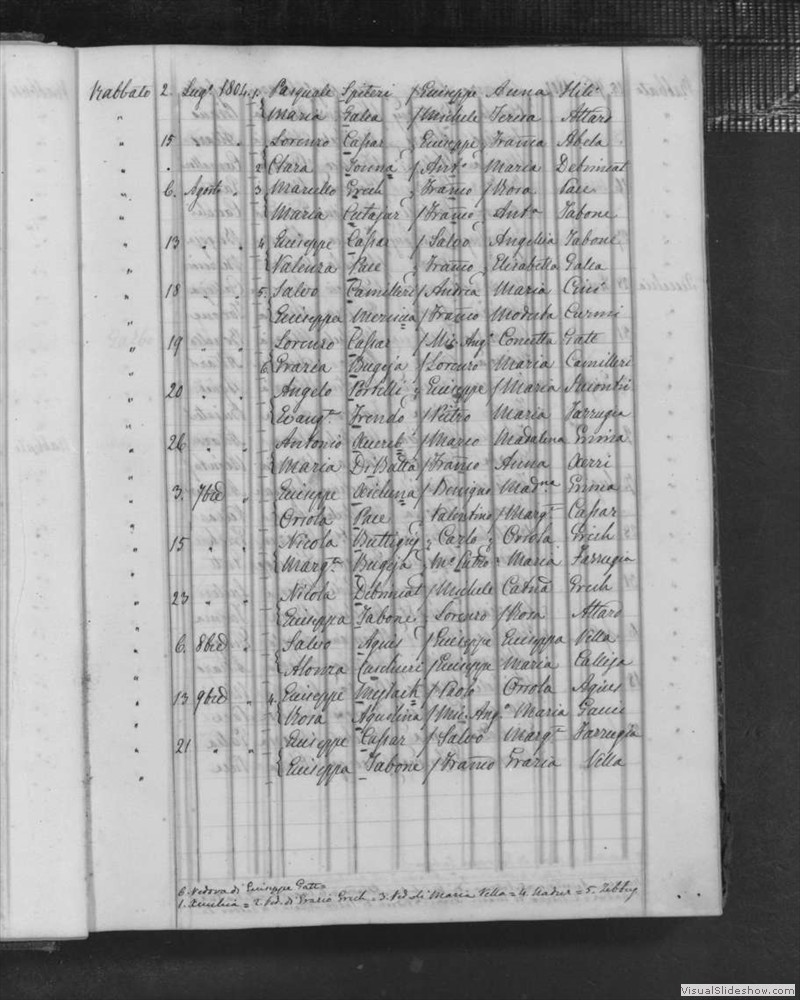 Rabbato 2. Lugo 1804. 1. Pasquale Spiteri / Giuseppe Anna
" Maria Galea / Michele Teresa Attard
" 15 Lorenzo Cassar Giuseppe Franca Abela
2 Clara / Anto Maria Debrincat
" 6. Agosto " 3 Marcello Grech / Franco / Rosa Pace
" Maria Cutajar / Franco Anta Tabone
" 13 " " 4. Giuseppe Cassar / Salvo Angelica Tabone
" Valenza Pace Franco Elisabetta Galea
" 18 " " 5. Salvo Camilleri / Andrea Maria
" Giuseppa Mercieca / Franco Curmi
" 19 " " Lorenzo Cassar / Mic. Ango Concetta Gatt
" 6. Grazia Bugeja / Lorenzo Maria Camilleri
" 20 " " Angelo Portelli Giuseppe / Maria
" Evangta Frendo / Pietro Maria Farrugia
" 26 " " Antonio / Marco Madalena
" Maria Di Batta / Franco Anna
" 3. 7bre " Giuseppe Aichuna / Benigno Madna
" Oriola Pace Valentino / Margta Cassar
" 15 " " Nicola Buttigieg Carlo Oriola Grech
" Margta Bugeja Maria Farrugia
" 23 " " Nicola Debrincat / Michele Catna Grech
" Giuseppa Tabone Lorenzo / Rosa Attard
" 6. 8bre " Salvo Agius / Giuseppe Giuseppa Vella
" Alonza / Giuseppe Maria Calleja
" 13 9bre " 4. Giuseppe Meylack / Paolo Oriola Agius
" Rosa Agustina / Mic. Ango Maria Gauci
" 21 " " Giuseppe Cassar / Salvo Margta Farrugia
" Giuseppa Tabone / Franco Grazia Vella
6. Vedova di Giuseppe Gatt =
1. = 2. Ved. di Grazio Grech = 3. Ved. di Maria Vella = 4. Nadur = 5. Zebbug
VisualSlideshow.com